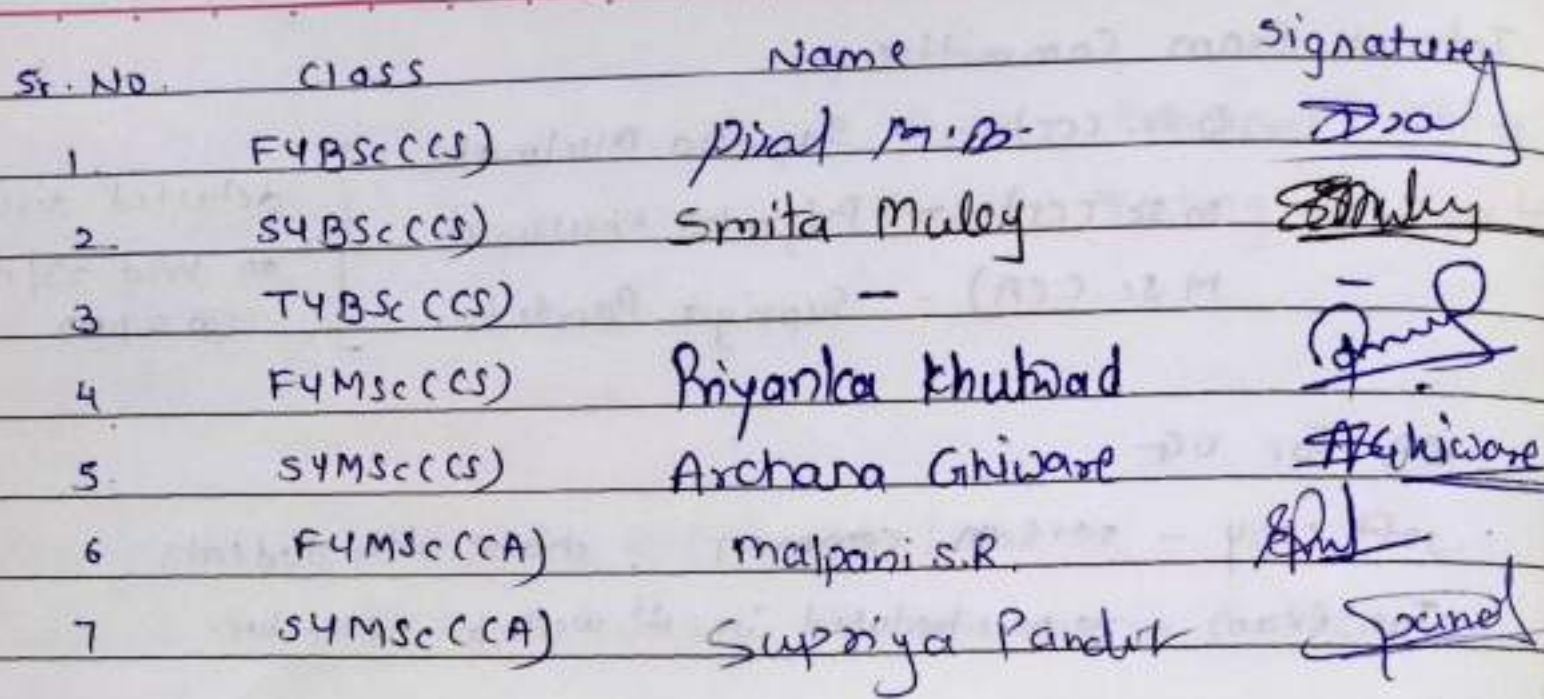 Sr. No. Class Name Signature
1. FYBSc(CS) Pisal M.B.
2. SYBSc(CS) Smita Muley SMuley
3 TYBSc(CS) — —
4 FYMSc(CS) Priyanka Khutwad
5. SYMSc(CS) Archana Ghiware AGhiware
6 FYMSc(CA) Malpani S.R.
7 SYMSc(CA) Supriya Pandit